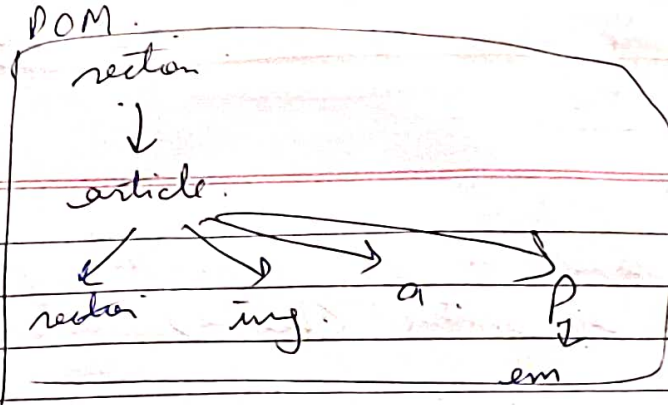 DOM.
section
article.
section img. a. P
em